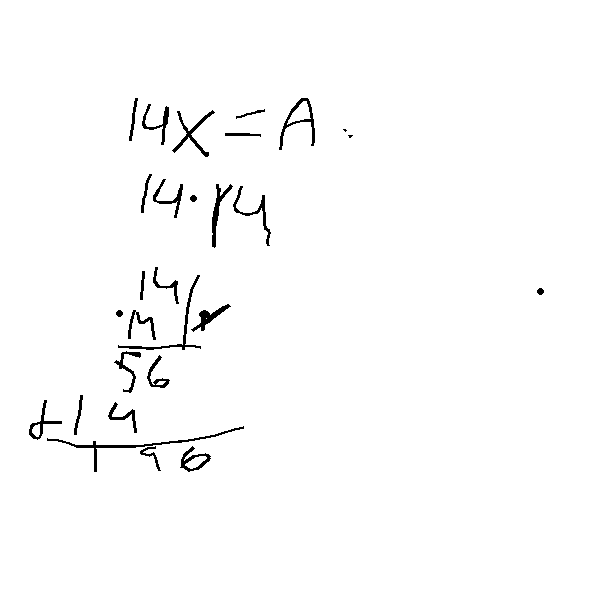 14x=A
14·14
14
·14
56
+14
196